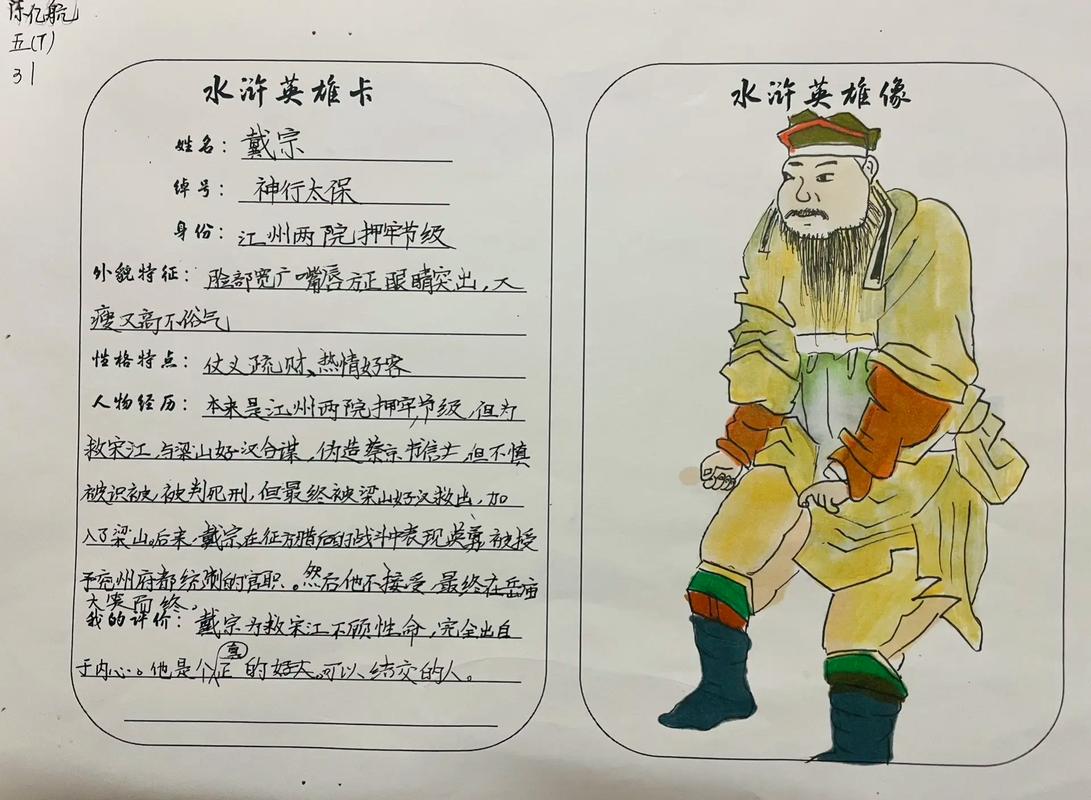 陈亿航
五(7)
31
水浒英雄卡
姓名：戴宗
绰号：神行太保
身份：江州两院押牢节级
外貌特征：脸部宽广嘴唇方正眼睛突出，
瘦又高不俗气
性格特点：仗义疏财、热情好客
人物经历：本来是江州两院押牢节级，但为
救宋江，与梁山好汉合谋，伪造蔡京书信，但不慎
被识被，被判死刑，但最终被梁山好汉救出，加
入了梁山。后来，戴宗在征方腊后的战斗中表现英勇被授
予兖州府都统制的官职。然后他不接受，最终在岳庙
大笑而终。
我的评价：戴宗为救宋江不顾性命，完全出自
于内心。他是个真正的好人。可以结交的人。
水浒英雄像